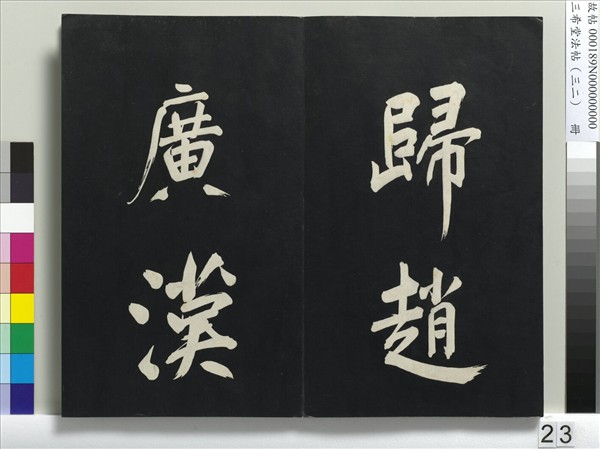 歸趙
廣漢
故帖 000189N000000000
三希堂法帖（三二） 冊
23